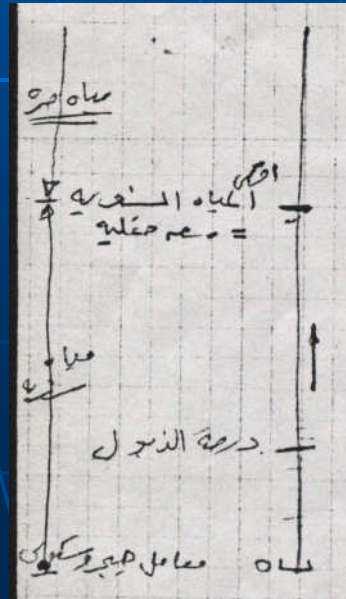 مياه حرة
أقصى
المياه الشعرية
= سعة حقلية
مياه
شعرية
درجة الذبول
معامل هيجروسكوبى